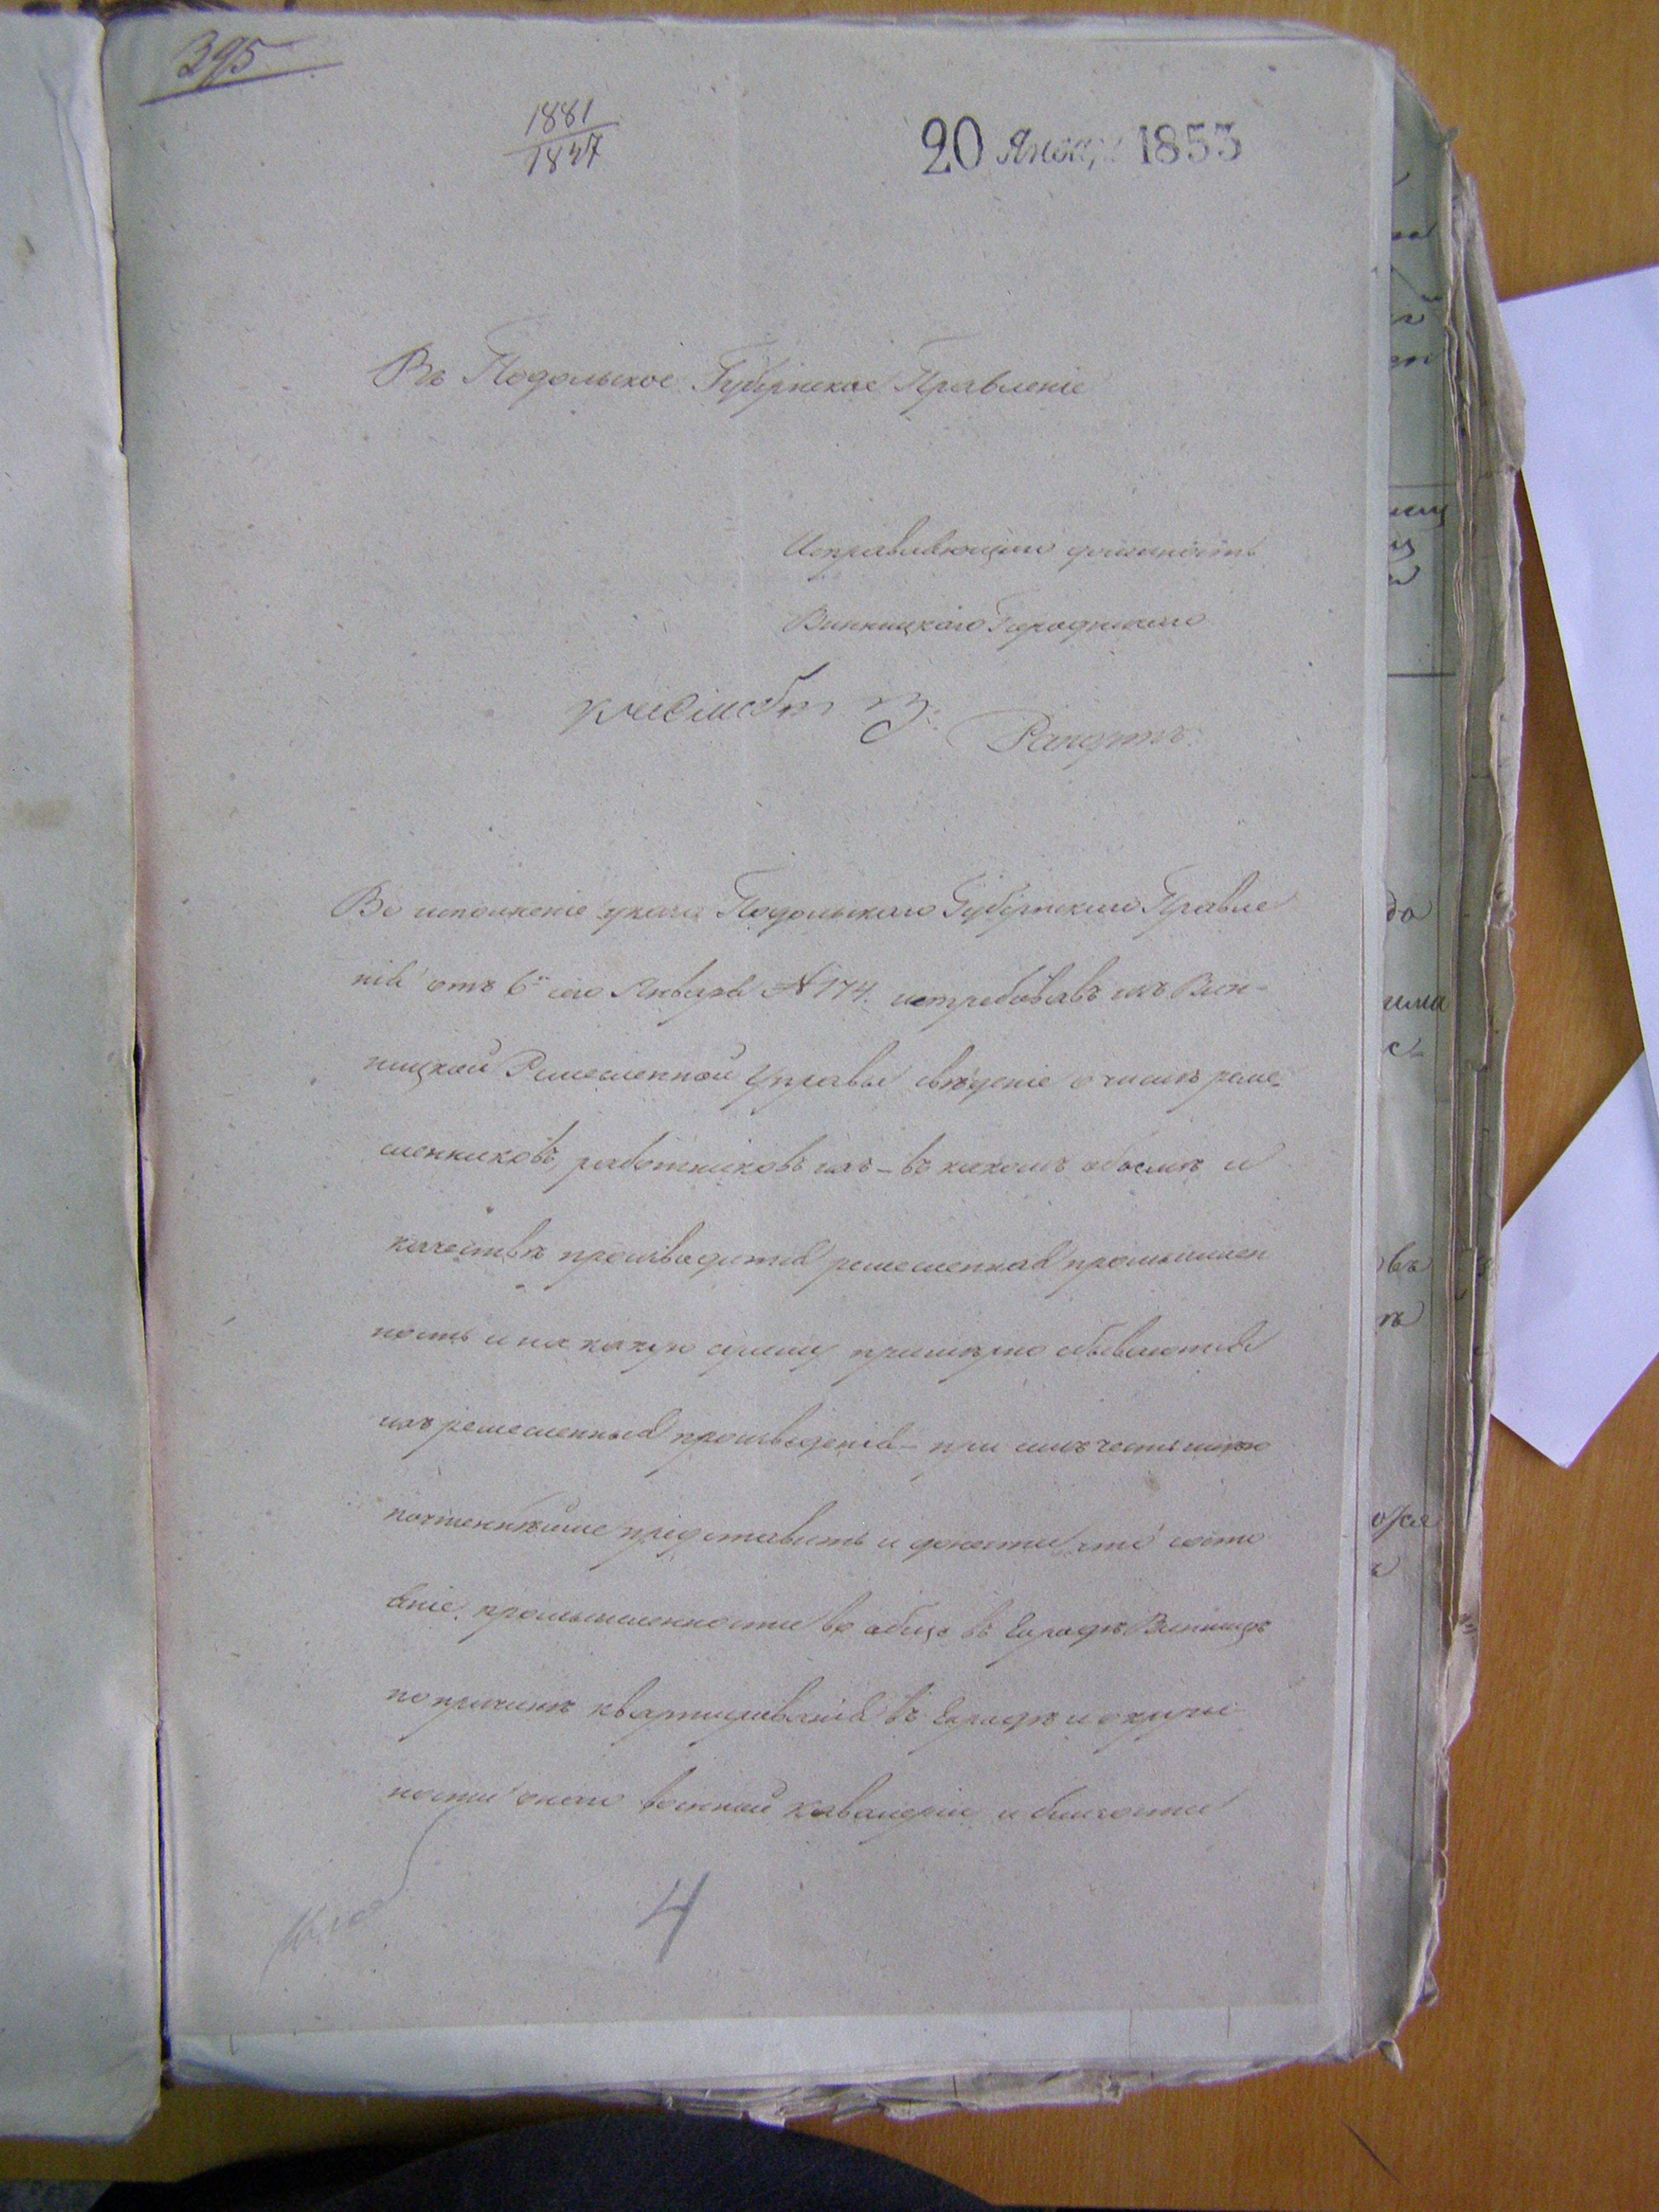 395
1881
1847
20 Января 1853
Въ Подольское Губернское Правленіе
Исправляющаго должность
Винницкаго Городничаго
Рапортъ
Во исполненіе указа Подольскаго Губернскаго Правле
нія отъ 6 сего Января № 174. истребовавъ изъ Вин-
ницкой Ремесленной Управы свѣденіе о числѣ реме-
сленниковъ, работниковъ ихъ - въ какомъ объемѣ и
качествѣ производится ремесленная промышлен
ность и на какую сумму примѣрно сбываются
ихъ ремесленныя произведенія - при семъ честь имѣю
почтеннѣйше представить и донести, что состо
яніе промышленности во обще въ городѣ Винницѣ
по причинѣ квартированія въ городѣ и окрест
ности онаго военной кавалеріи и близости
4